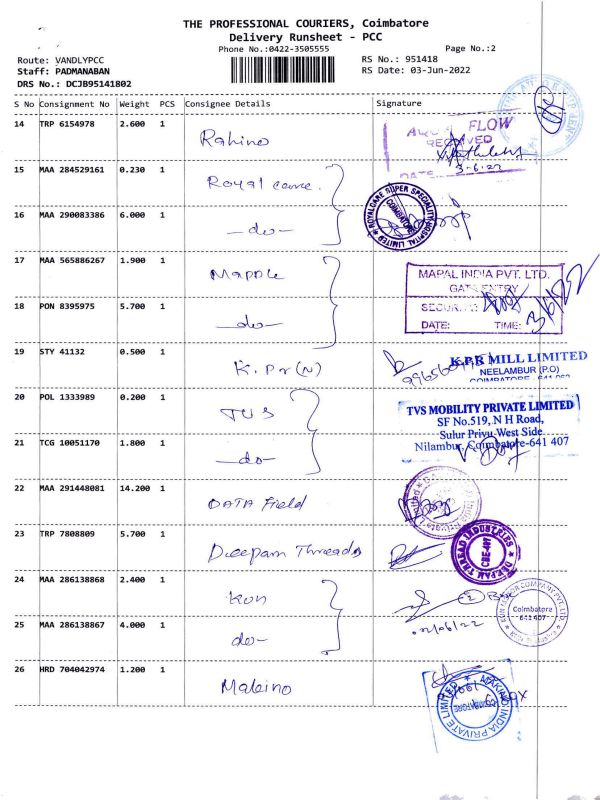 THE PROFESSIONAL COURIERS, Coimbatore
Delivery Runsheet - PCC
Phone No.:0422-3505555
Page No.:2
Route: VANDLYPCC
RS No.: 951418
Staff: PADMANABAN
RS Date: 03-Jun-2022
DRS No.: DCJB95141802
S No Consignment No Weight PCS Consignee Details Signature
14 TRP 6154978 2.600 1 Rahino
FLOW
RECEIVED
DATE
3-6-22
15 MAA 284529161 0.230 1 Royal came.
16 MAA 290083386 6.000 1 -do-
ROYALCARE SUPER SPECIALITY HOSPITAL LIMITED
COIMBATORE
17 MAA 565886267 1.900 1 Mapple
MAPAL INDIA PVT. LTD.
GATE ENTRY
18 PON 8395975 5.700 1 -do-
SECURITY
DATE: TIME:
3/6/22
19 STY 41132 0.500 1 K.Pr(N)
K.P.R MILL LIMITED
NEELAMBUR (P.O)
COIMBATORE - 641 062
20 POL 1333989 0.200 1 TVS
TVS MOBILITY PRIVATE LIMITED
SF No.519, N H Road,
Sulur Privu West Side
Nilambur, Coimbatore-641 407
21 TCG 10051170 1.800 1 -do-
22 MAA 291448081 14.200 1 DATA Field
23 TRP 7808809 5.700 1 Deepam Threads
DEEPAM THREAD INDUSTRIES
CBE-407
24 MAA 286138868 2.400 1 Kon
Coimbatore
641 407
25 MAA 286138867 4.000 1 do-
02/06/22
26 HRD 704042974 1.200 1 Makino
MAKINO INDIA PRIVATE LIMITED
COIMBATORE